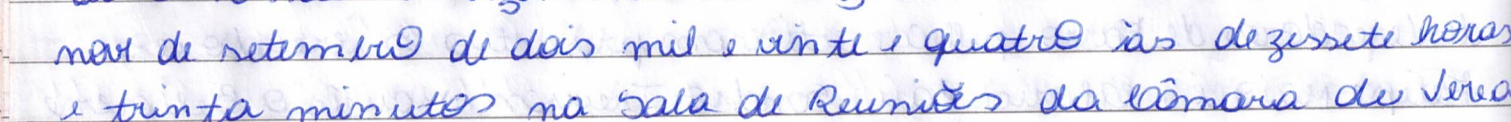 nove de setembro de dois mil e vinte e quatro às dezessete horas
e trinta minutos na Sala de Reuniões da Câmara de Verea